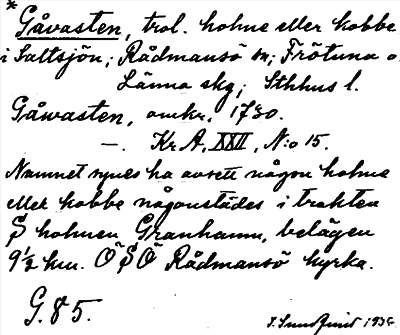 * Gåvasten, trol. holme eller kobbe
i Saltsjön; Rådmansö sn; Frötuna o.
Länna skg; Sthlms l.
Gåwasten, omkr. 1730.
—. Kr A, XXII, N:o 15.
Namnet synes ha avsett någon holme
eller kobbe någonstädes i trakten
S holmen Granhamn, belägen
9½ km. ÖSÖ Rådmansö kyrka.
G. 85.
1936